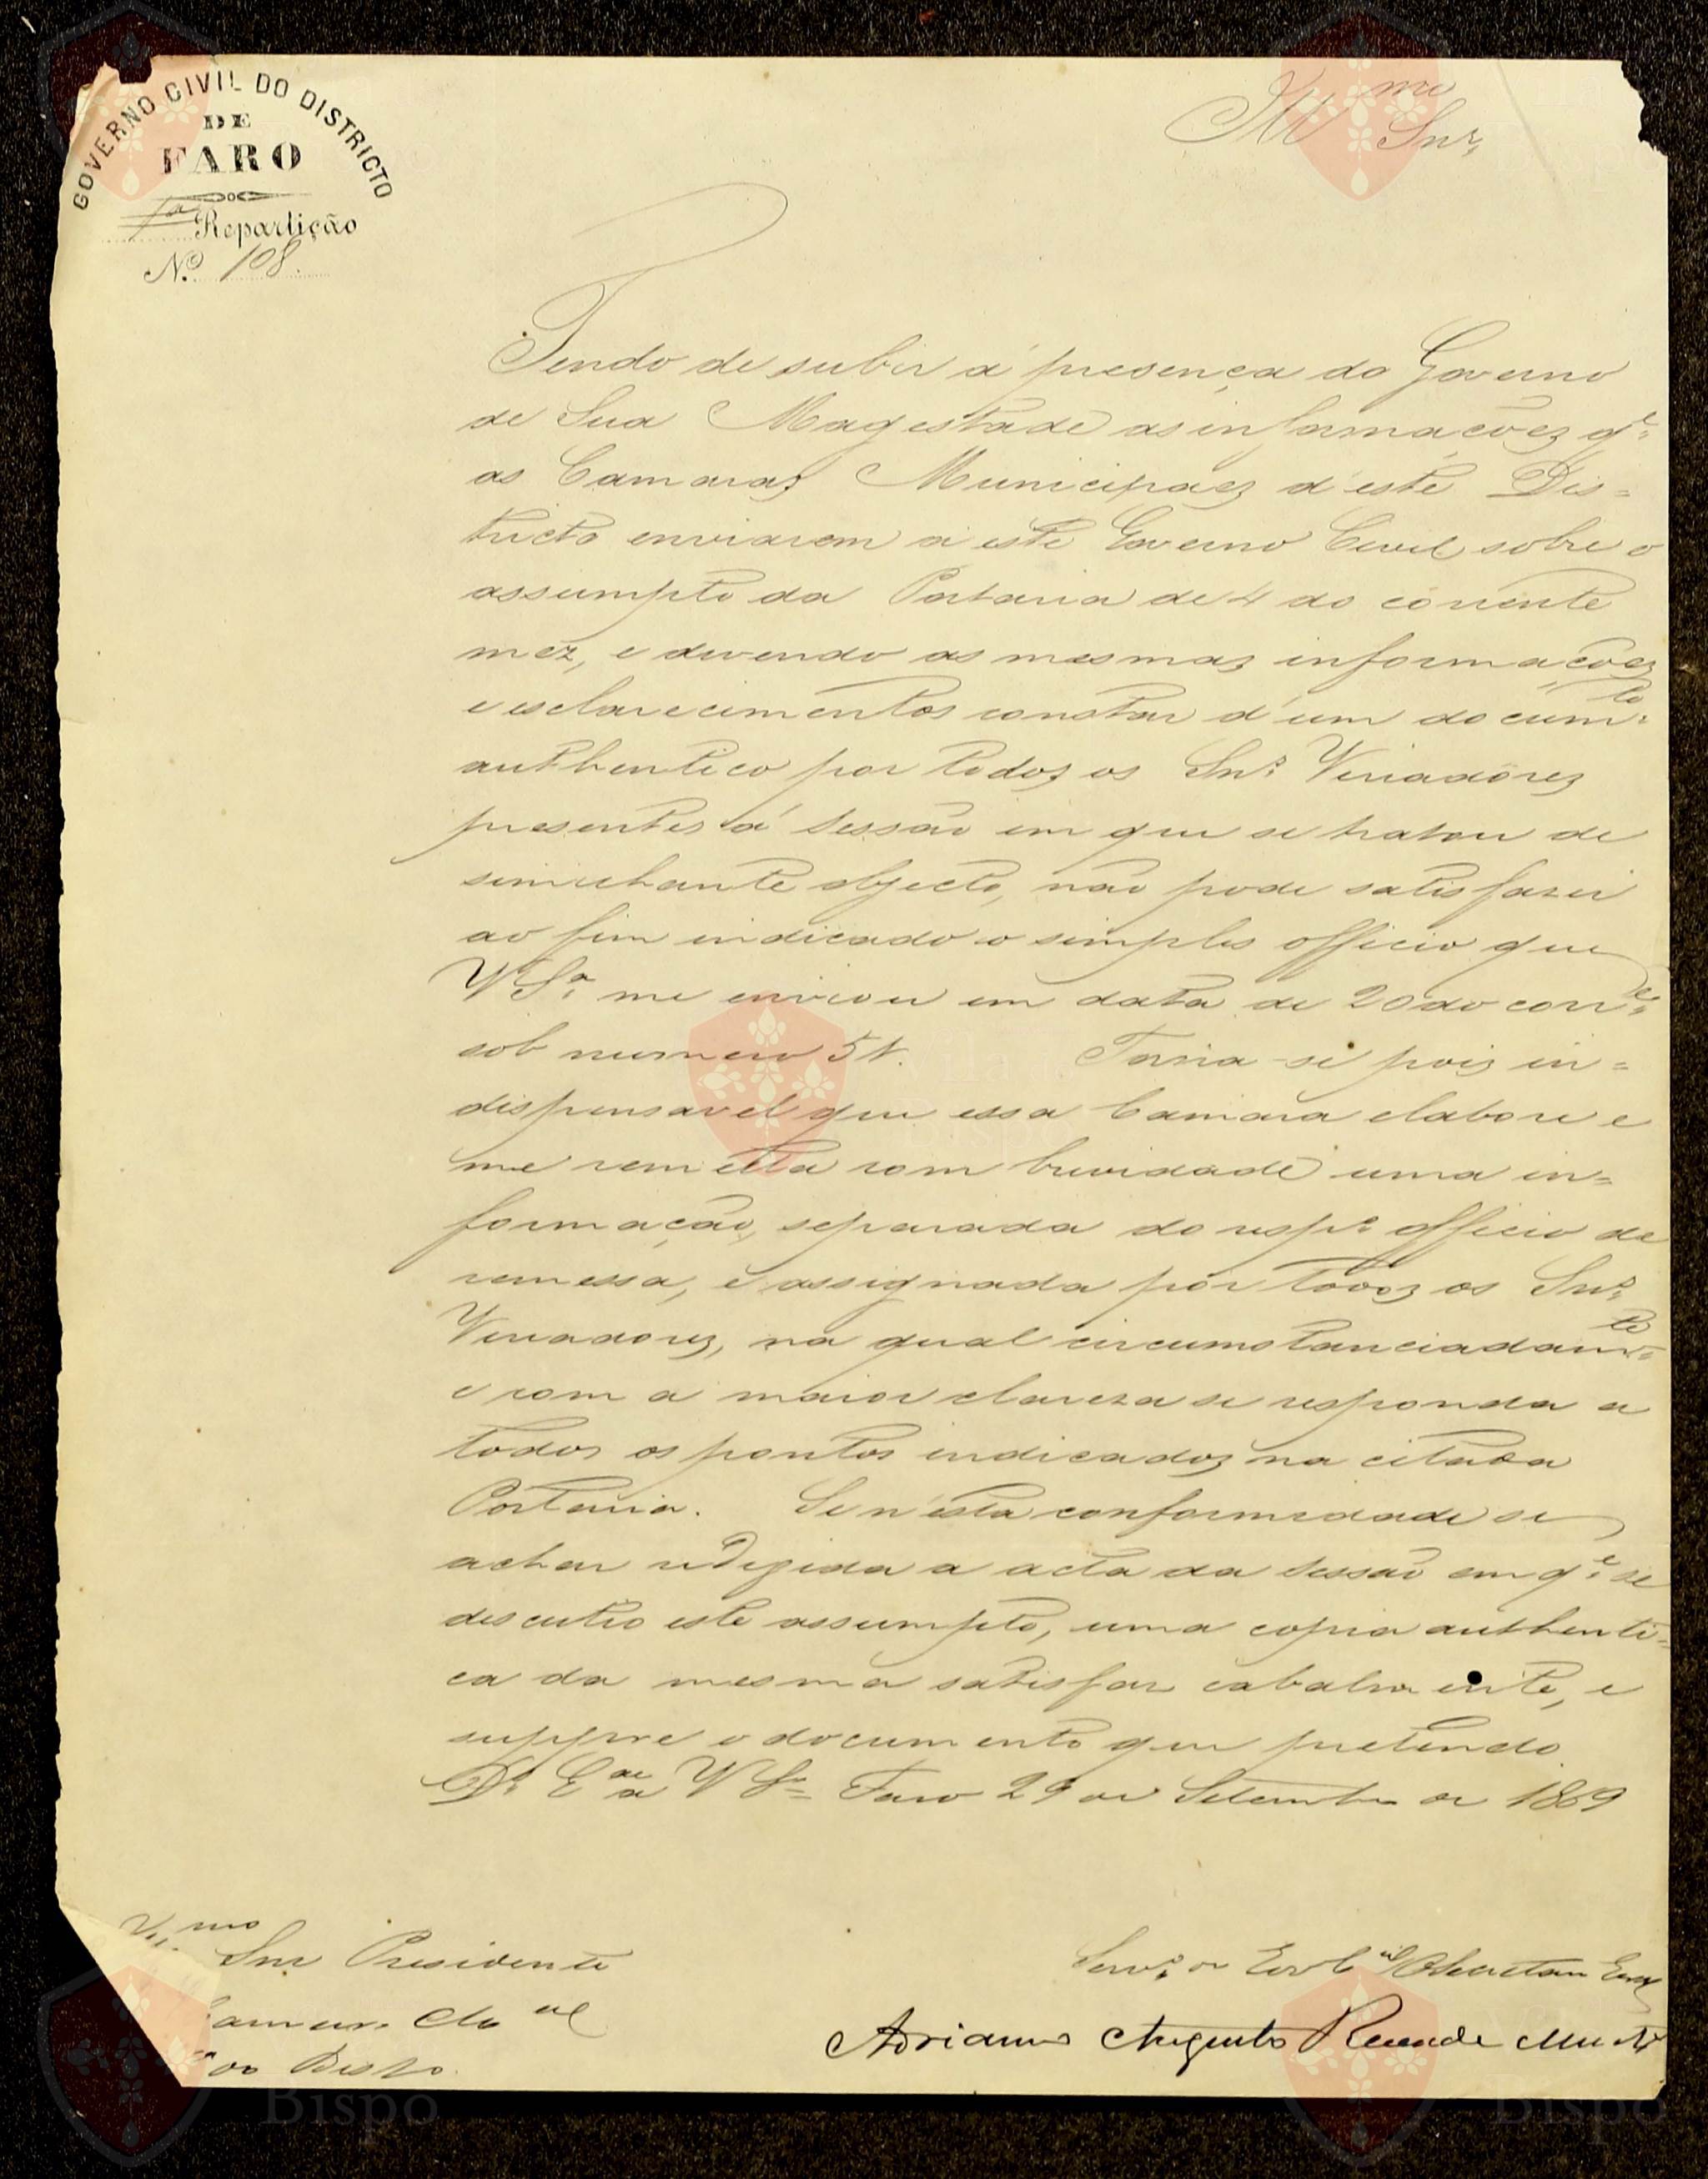 GOVERNO CIVIL DO DISTRICTO
DE
FARO
1ª Repartição
Nº 108.
Illmo Snr,
Tendo de subir á presença do Governo
de Sua Magestade as informações q.e
as Camaras Municipaes d'este Dis=
tricto enviarem a este Governo Civil sobre o
assumpto da Portaria de 4 do corrente
mez, e devendo as mesmas informações
e esclarecimentos constar d'um documto.
authentico por todos os Snr.s Veriadores
presentes á Sessão em que se tratou de
similhante objecto, não pode satisfazer
ao fim indicado o simples officio que
V Sª. me enviou em data de 20 do corr.e
sob numero 51. Torna-se pois in=
dispensavel que essa Camara elabore e
me remetta com brividade uma in=
formação, separada do resp.o officio de
remessa, e assignada por todos os Snr.s
Veriadores, na qual circumstanciadamte.
e com a maior clareza se responda a
todos os pontos indicados na citada
Portaria. Se n'esta conformidade se
achar redigida a acta da Sessão em q.e se
descutio este assumpto, uma copia authenti=
ca da mesma satisfaz cabalmente, e
suppre o documento que pretendo.
D.s G.de a V Sª Faro 29 de Setembro de 1869
mo Snr Presidente
amara Mal
do Bispo.
Serv.o de Gov.
Adriano Augusto Rezende
Bispo
Bispo